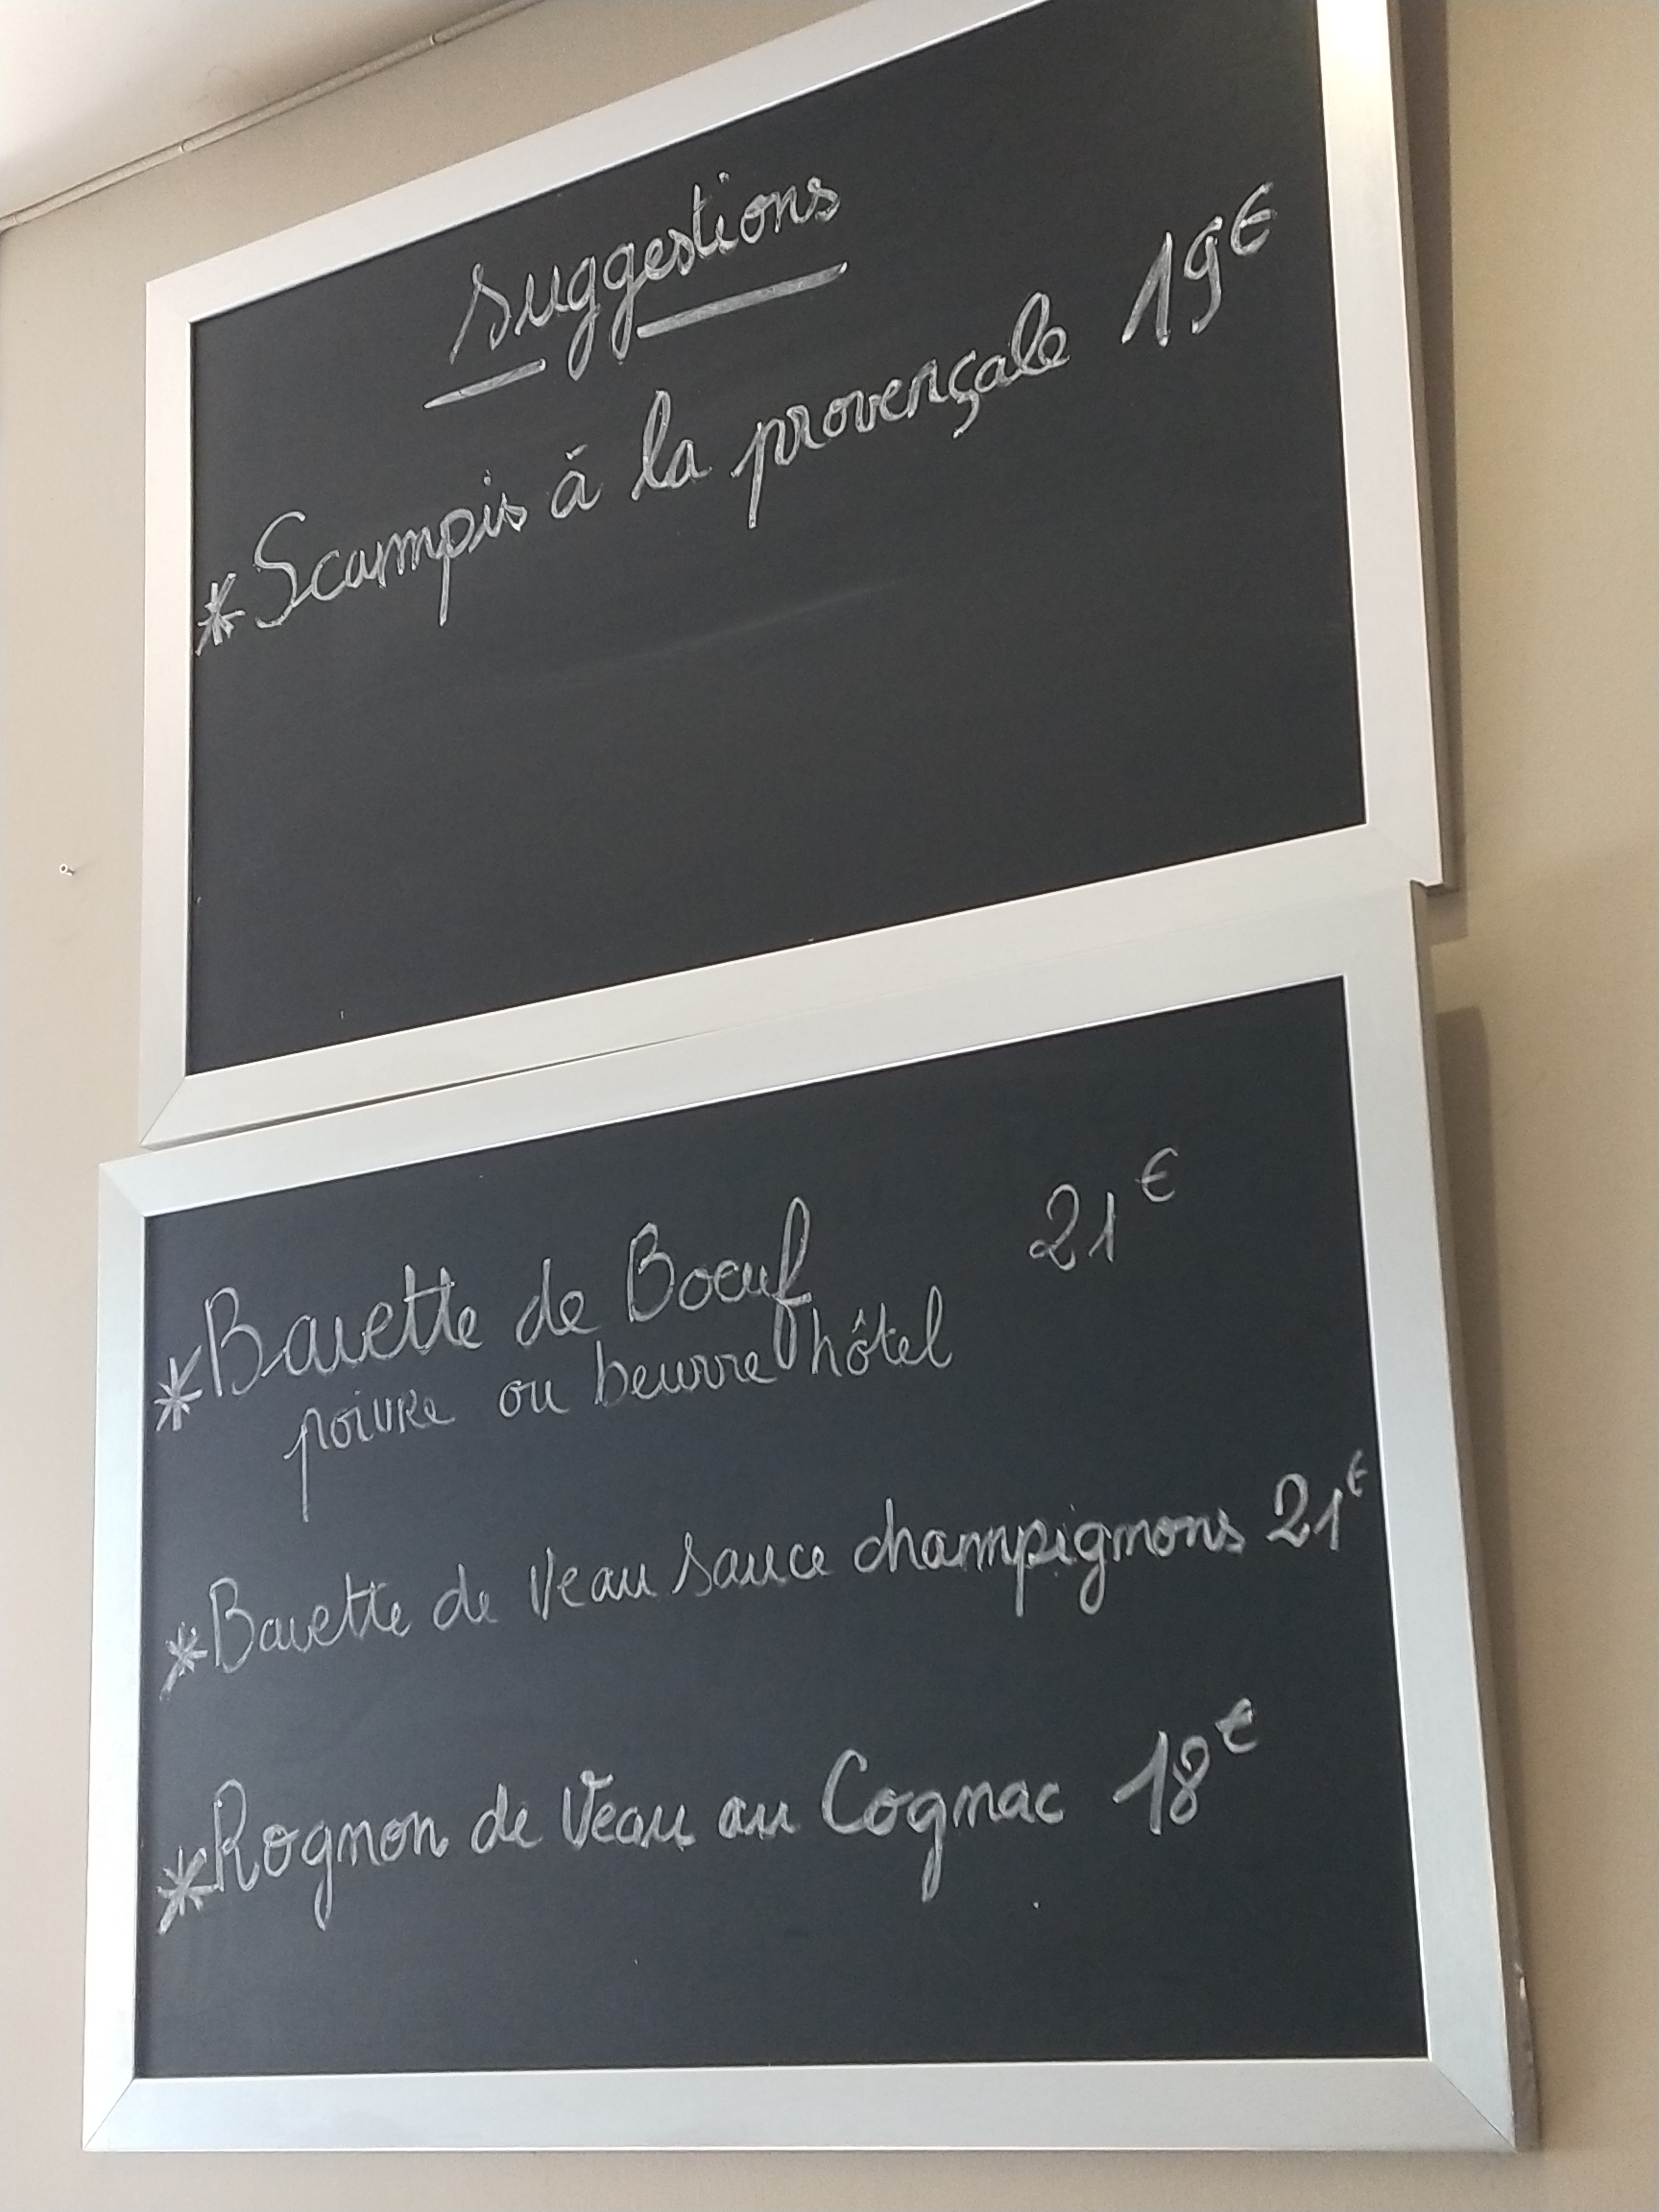 Suggestions
* Scampis à la provençale 19€
* Bavette de Boeuf 21€
poivre ou beurre hôtel
* Bavette de Veau sauce champignons 21€
* Rognon de Veau au Cognac 18€